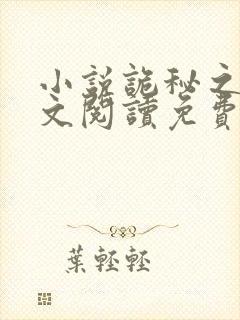 小說詭秘之
文閱讀免費
葉輕輕